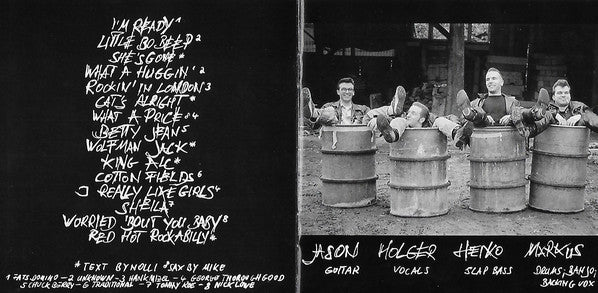 I'M READY 1
LITTLE BO BEEP 2
SHE'S GONE *
WHAT A HUGGIN' 2
ROCKIN' IN LONDON 3
CAT'S ALRIGHT *
WHAT A PRICE 4
BETTY JEAN 5
WOLFMAN JACK *
KING ALC *
COTTON FIELDS 6
I REALLY LIKE GIRLS 4
SHEILA 7
WORRIED 'BOUT YOU BABY 8
RED HOT ROCKABILLY *
* TEXT BY NOLLI SAX BY MIKE
1 FATS DOMINO – 2 UNKNOWN – 3 HANK MIZEL – 4 GEORGE THOROUGHGOOD
5 CHUCK BERRY – 6 TRADITIONAL – 7 TOMMY ROE – 8 NICK LOVE
JASON
GUITAR
HOLGER
VOCALS
HEIKO
SLAP BASS
MARKUS
DRUMS, BANJO,
BACKING VOX